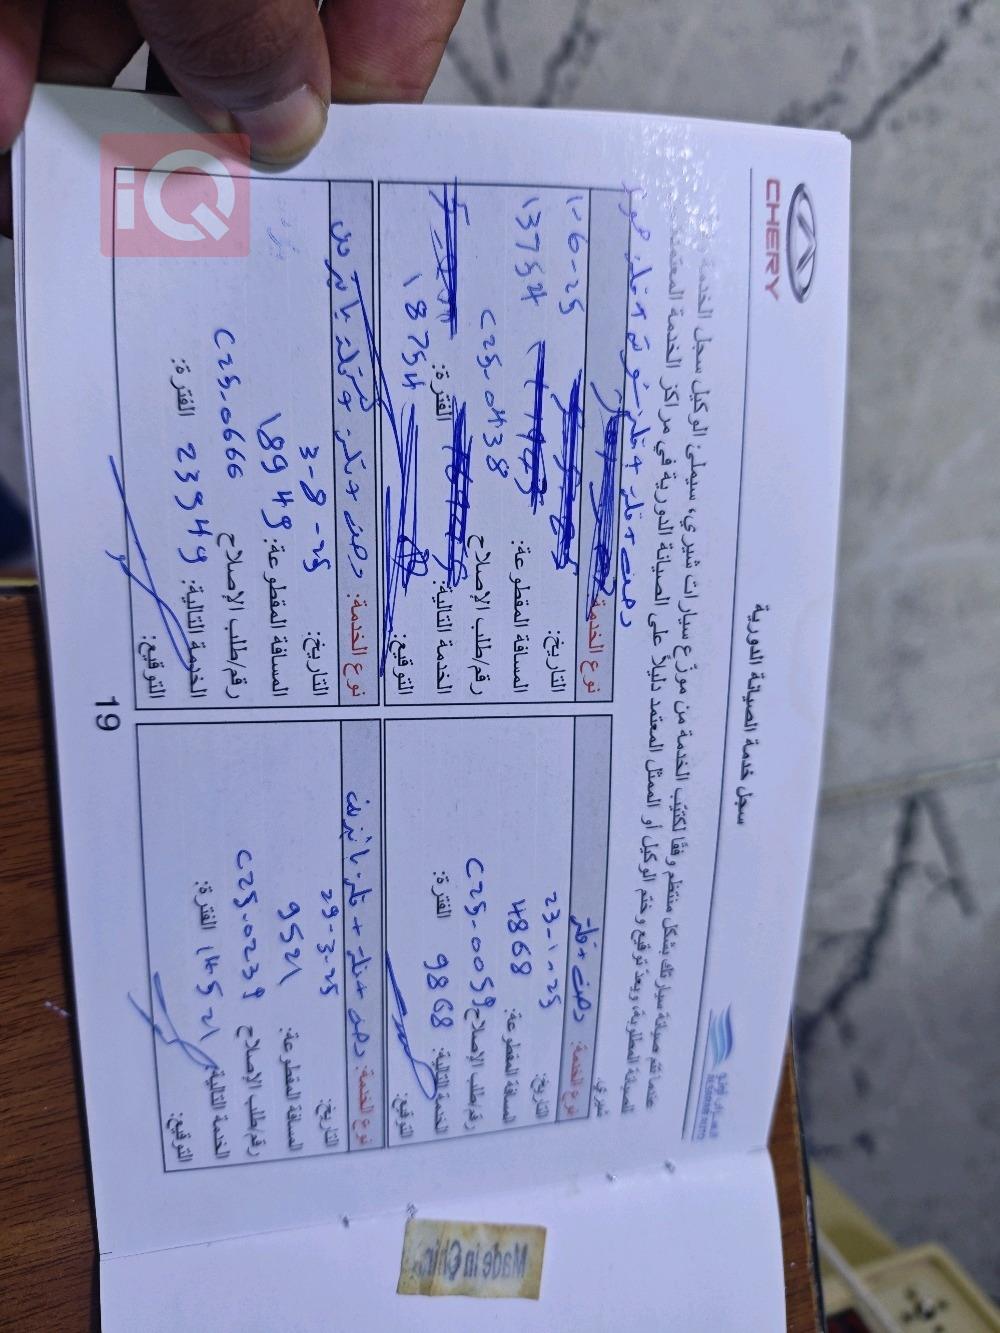 CHERY
سجل خدمة الصيانة الدورية
عندما تتم صيانة سيارتك بشكل منتظم وفقًا لكتيّب الخدمة من موزّع سيارات شيري، سيملئ الوكيل سجل الخدمة
الصيانة المطلوبة، ويعدّ توقيع وختم الوكيل أو الممثل المعتمد دليلاً على الصيانة الدورية في مراكز الخدمة المعتمدة
شيري.
نوع الخدمة: دهن + فلتر
التاريخ: 23-1-25
المسافة المقطوعة: 4868
رقم/طلب الإصلاح C25-0059
الخدمة التالية: 9868 الفترة:
التوقيع:
نوع الخدمة: دهن + فلتر +
التاريخ: 1-6-25
المسافة المقطوعة: 13754
رقم/طلب الإصلاح C25-0438
الخدمة التالية: الفترة: 18754
التوقيع:
نوع الخدمة: دهن + فلتر + فلتر بانزين
التاريخ: 29-3-25
المسافة المقطوعة: 9521
رقم/طلب الإصلاح C25-0239
الخدمة التالية: 14521 الفترة:
التوقيع:
نوع الخدمة: دهن + فلتر +
التاريخ: 3-8-25
المسافة المقطوعة: 18949
رقم/طلب الإصلاح C25-0666
الخدمة التالية: 23949 الفترة:
التوقيع:
19
Made in China
iQ